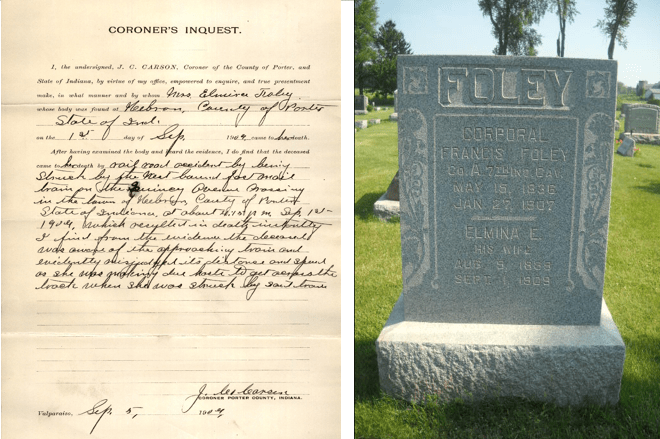 CORONER'S INQUEST.
I, the undersigned, J. C. CARSON, Coroner of the County of Porter, and
State of Indiana, by virtue of my office, empowered to enquire, and true presentment
make, in what manner and by whom Mrs Elmira Foley
whose body was found at Hebron, County of Porter
State of Ind.
on the 1st day of Sep 190 came to her death.
After having examined the body and heard the evidence, I do find that the deceased
came to her death by rail road accident by being
Struck by the West bound fast mail
train on the Quincy Avenue Crossing
in the town of Hebron, County of Porter
State of Indiana, at about P.M. Sep. 1st
which resulted in death instantly
I find from the evidence the deceased
was aware of the approaching train and
evidently misjudged its distance and speed
as she was making due haste to get across the
track when she was struck by said train
J. C. Carson
CORONER PORTER COUNTY, INDIANA.
Valparaiso, Sep 5, 190
FOLEY
CORPORAL
FRANCIS FOLEY
CO. A. 7TH IND. CAV.
MAY 1836
JAN. 27, 1907
ELMINA E.
HIS WIFE
AUG. 9, 1839
SEPT. 1, 1909